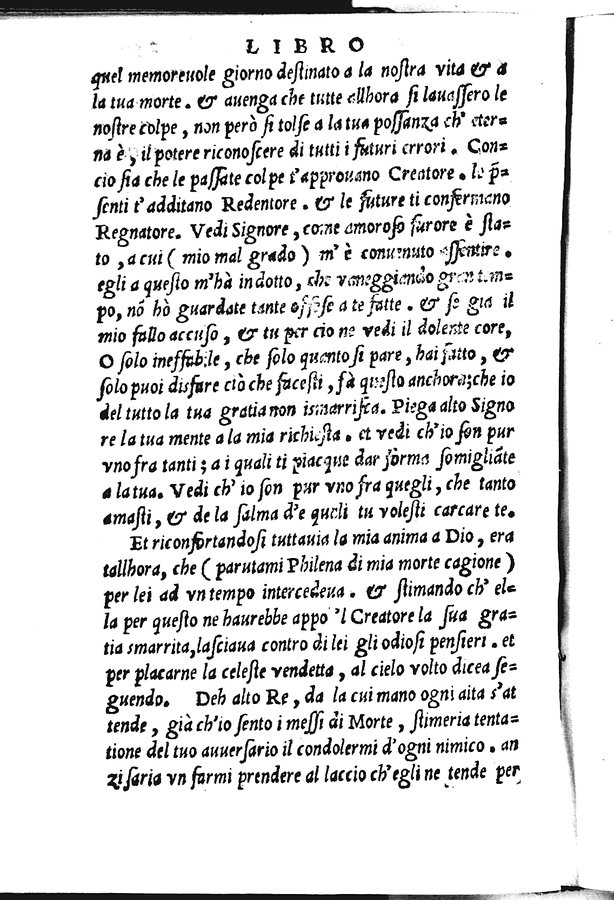 LIBRO
quel memoreuole giorno deſtinato a la noſtra vita & a
la tua morte. & auenga che tutte allhora ſi lauaſſero le
noſtre colpe, non però ſi tolſe a la tua poſſanza ch' eter=
na è, il potere riconoſcere di tutti i futuri errori. Con=
cio ſia che le paſſate colpe t'approuano Creatore. le p̄=
ſenti t'additano Redentore. & le future ti confermano
Regnatore. Vedi Signore, come amoroſo furore è ſta=
to, a cui ( mio mal grado ) m' è conuenuto aſſentire.
egli a queſto m'hà indotto, che vaneggiando gran tem=
po, nō hò guardate tante offeſe a te fatte. & ſe gia il
mio fallo accuſo, & tu per cio ne vedi il dolente core,
O ſolo ineffabile, che ſolo quanto ſi pare, hai fatto, &
ſolo puoi disfare ciò che faceſti, fà queſto anchora; che io
del tutto la tua gratia non iſmarriſca. Piega alto Signo
re la tua mente a la mia richieſta. et vedi ch'io ſon pur
vno fra tanti; a i quali ti piacque dar forma ſomigliāte
a la tua. Vedi ch' io ſon pur vno fra quegli, che tanto
amaſti, & de la ſalma d'e quali tu voleſti carcare te.
Et riconfortandoſi tuttauia la mia anima a Dio, era
tallhora, che ( parutami Philena di mia morte cagione )
per lei ad vn tempo intercedeua. & ſtimando ch' el=
la per queſto ne haurebbe appo 'l Creatore la ſua gra=
tia smarrita, laſciaua contro di lei gli odioſi penſieri. et
per placarne la celeſte vendetta, al cielo volto dicea ſe=
guendo. Deh alto Re, da la cui mano ogni aita s'at
tende, già ch'io ſento i meſſi di Morte, ſtimeria tenta=
tione del tuo auuerſario il condolermi d'ogni nimico. an
zi ſaria vn farmi prendere al laccio ch'egli ne tende per